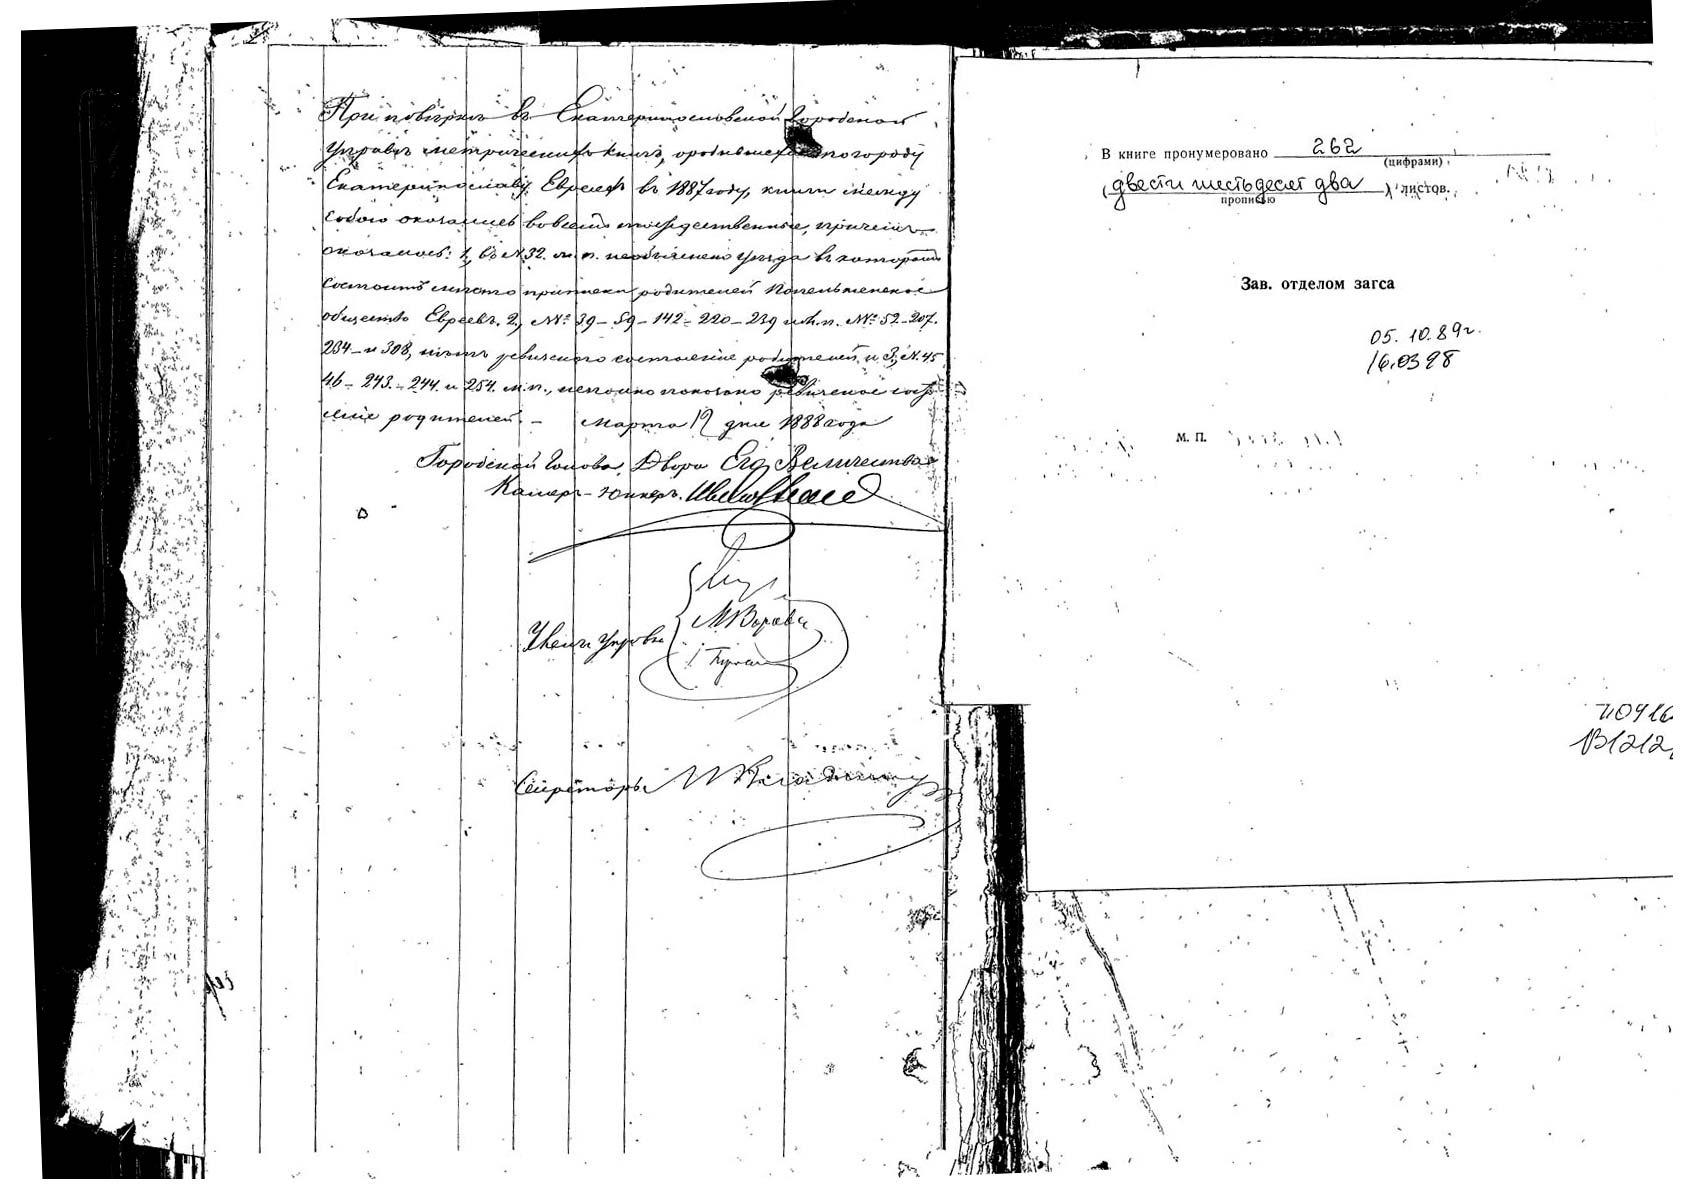 При повѣркѣ въ Екатеринославской Городской
Управѣ метрическихъ книгъ, о родившихся по городу
Екатеринославу Евреяхъ въ 1887 году, книги между
собою оказались во всемъ тождественные, причемъ
оказалось: 1, въ №32. м. п. необъяснено уѣзда въ которомъ
состоитъ мѣсто приписки родителей
общество Евреевъ. 2, №№ 39 – 59 – 142 – 220 – 239 и ж. п. №№ 52 – 207.
234 – и 308, нѣтъ ревизского состояние родителей. и 3, №. 45
46 – 243. – 244. и 254. м. п., непоказано ревизское состо
яние родителей. – Марта 12 дня 1888 года
Городской Голова, Двора Его Величества
Камеръ-Юнкеръ.
Члены Управы
Секретарь
В книге пронумеровано 262
(цифрами)
(двести шестьдесят два) листов.
прописью
Зав. отделом загса
05. 10. 89г.
160398
М. П.